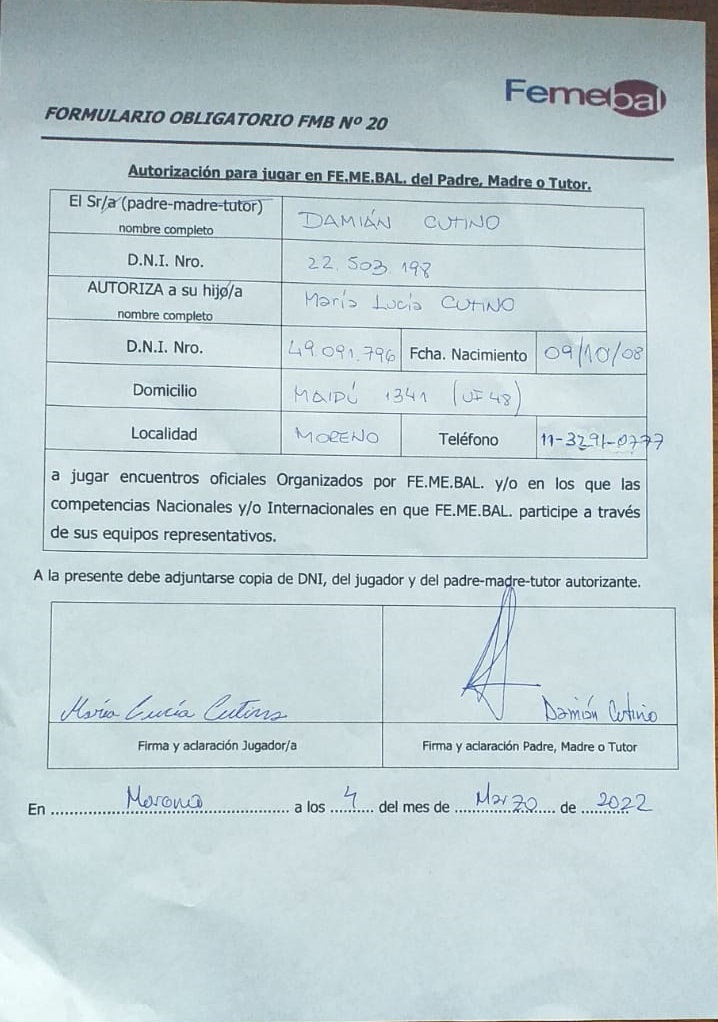 Femebal
FORMULARIO OBLIGATORIO FMB Nº 20
Autorización para jugar en FE.ME.BAL. del Padre, Madre o Tutor.
El Sr/a (padre-madre-tutor) DAMIÁN CUTINO
nombre completo
D.N.I. Nro. 22.503.198
AUTORIZA a su hijo/a María Lucía CUTINO
nombre completo
D.N.I. Nro. 49.091.796 Fcha. Nacimiento 09/10/08
Domicilio MAIPÚ 1341 (UF 48)
Localidad MORENO Teléfono 11-3291-0777
a jugar encuentros oficiales Organizados por FE.ME.BAL. y/o en los que las
competencias Nacionales y/o Internacionales en que FE.ME.BAL. participe a través
de sus equipos representativos.
A la presente debe adjuntarse copia de DNI, del jugador y del padre-madre-tutor autorizante.
María Lucía Cutino Damián Cutino
Firma y aclaración Jugador/a Firma y aclaración Padre, Madre o Tutor
En Moreno a los 4 del mes de Marzo de 2022